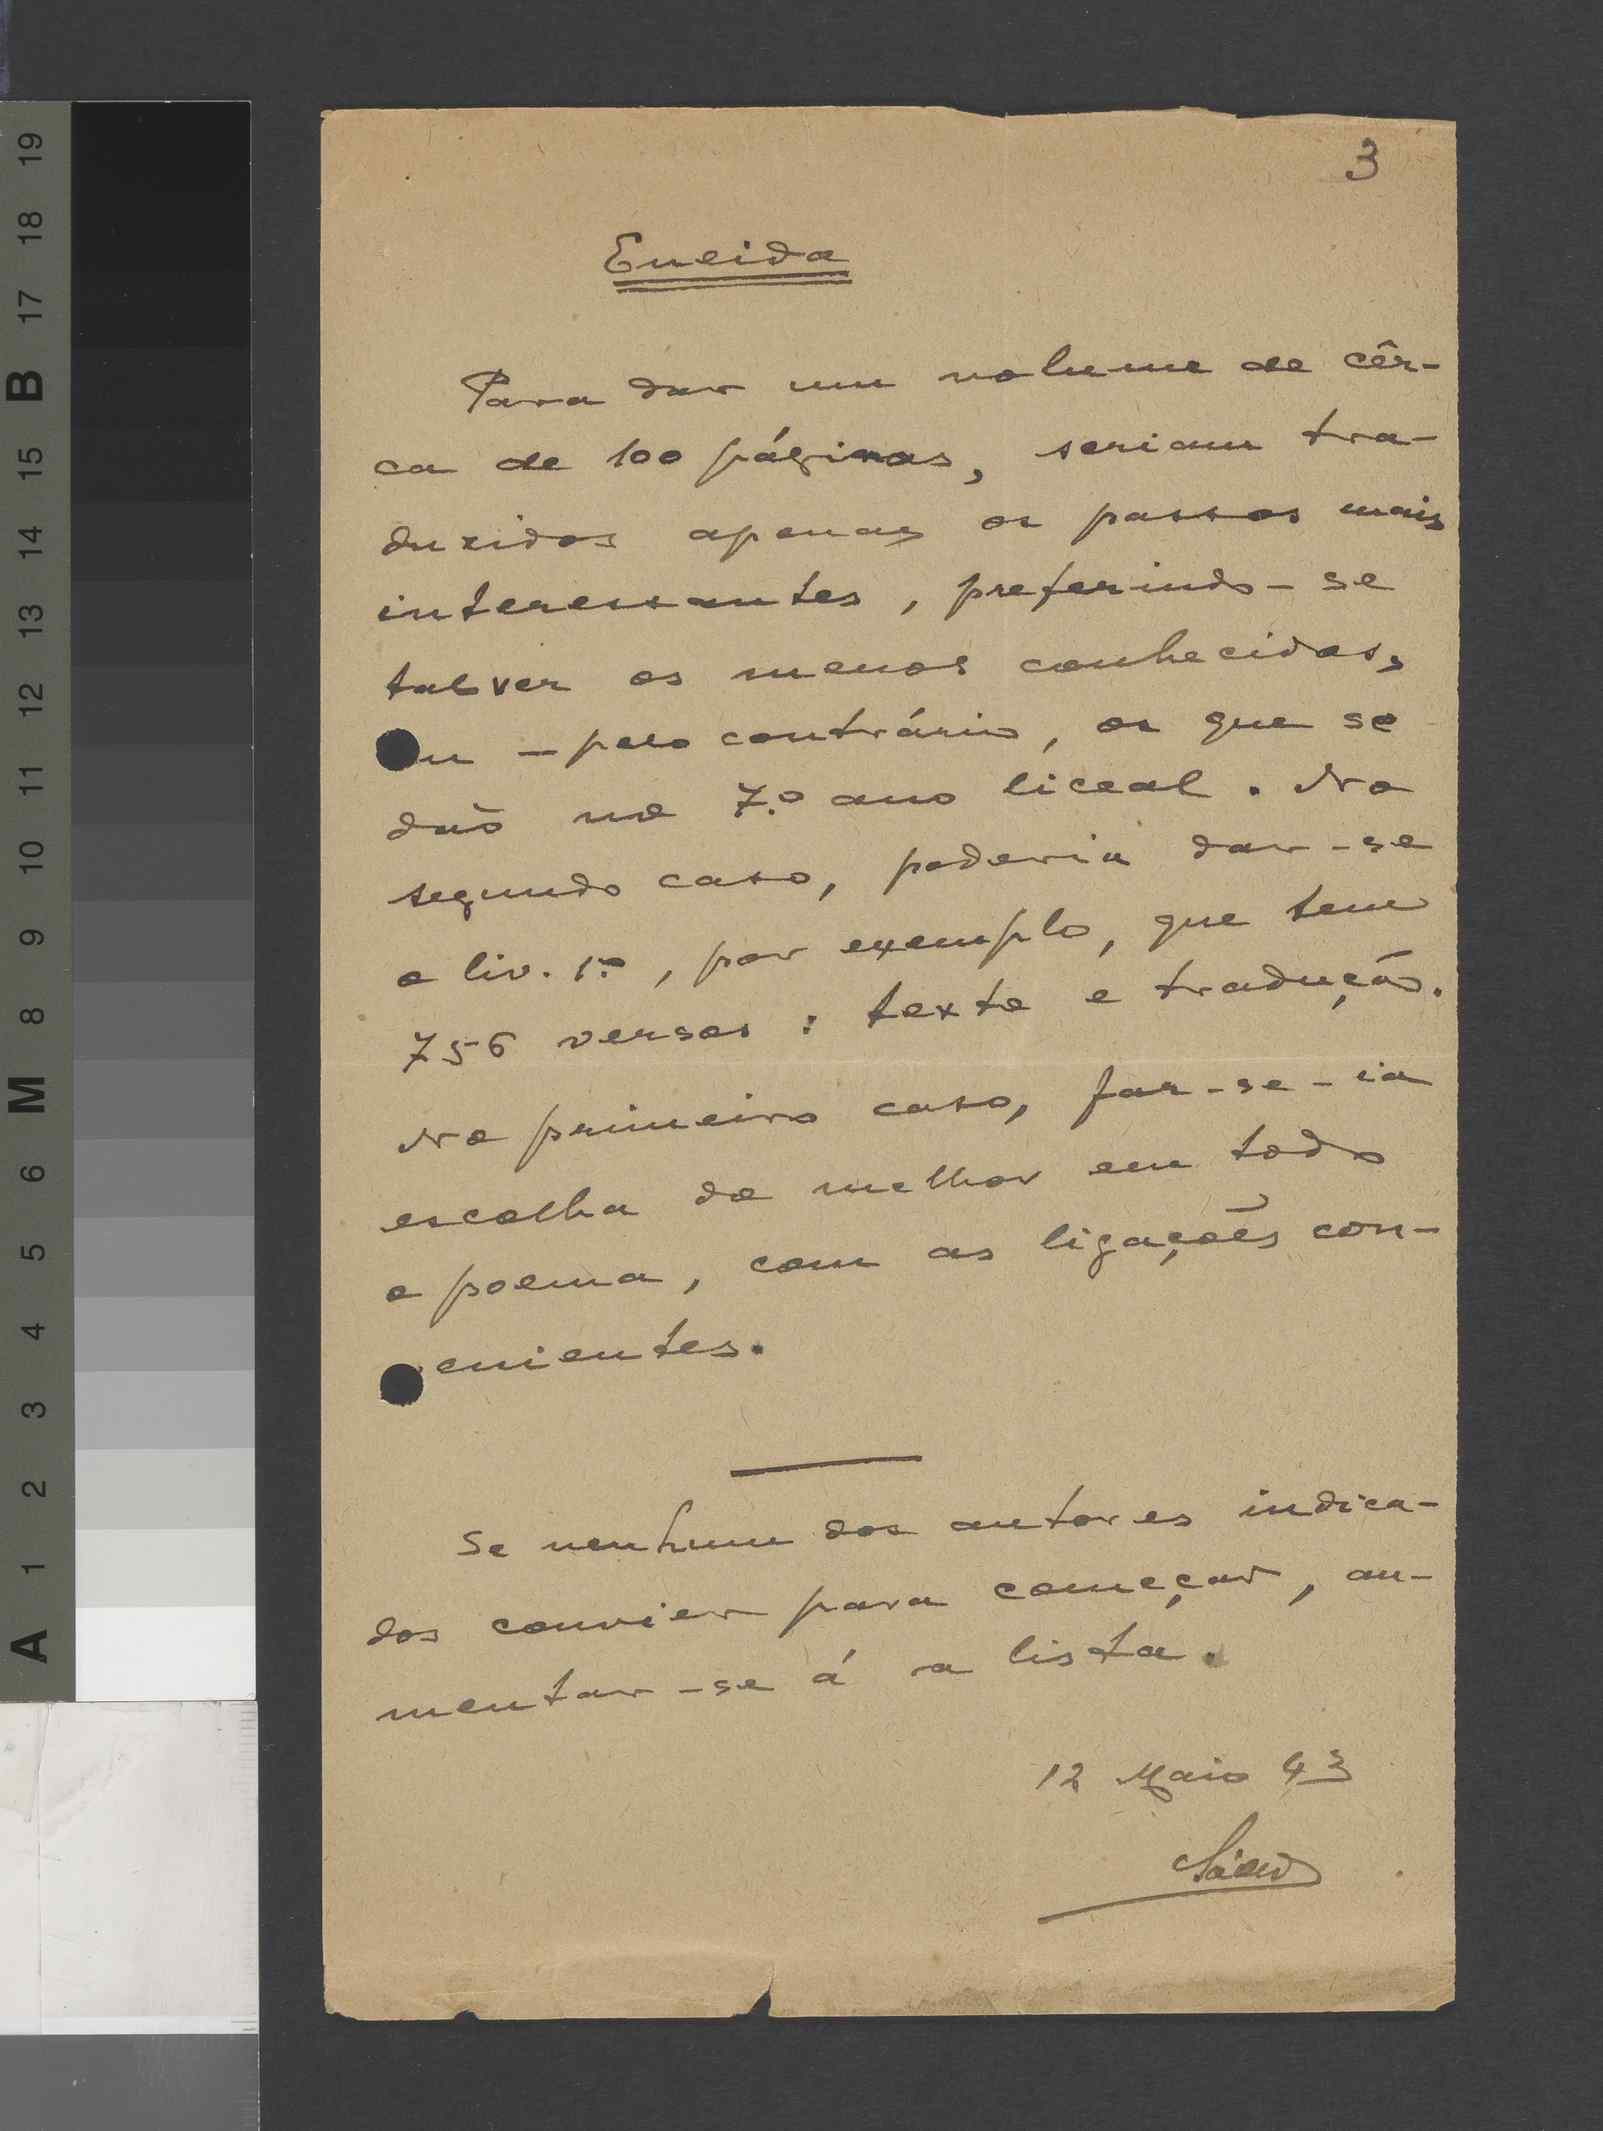 3
Eneida
Para dar um volume de cêr-
ca de 100 páginas, seriam tra-
duzidos apenas os passos mais
interessantes, preferindo-se
talvez os menos conhecidos,
ou – pelo contrário, os que se
dão no 7.º ano liceal. No
segundo caso, poderia dar-se
o liv. 1.º, por exemplo, que tem
756 versos: texto e tradução.
No primeiro caso, far-se-ia
escolha do melhor em todo
o poema, com as ligações con-
enientes.
Se nenhum dos autores indica-
dos convier para começar, au-
mentar-se á a lista.
12 Maio 43
19
18
17
B
15
14
13
12
11
10
9
8
M
6
5
4
3
2
1
A